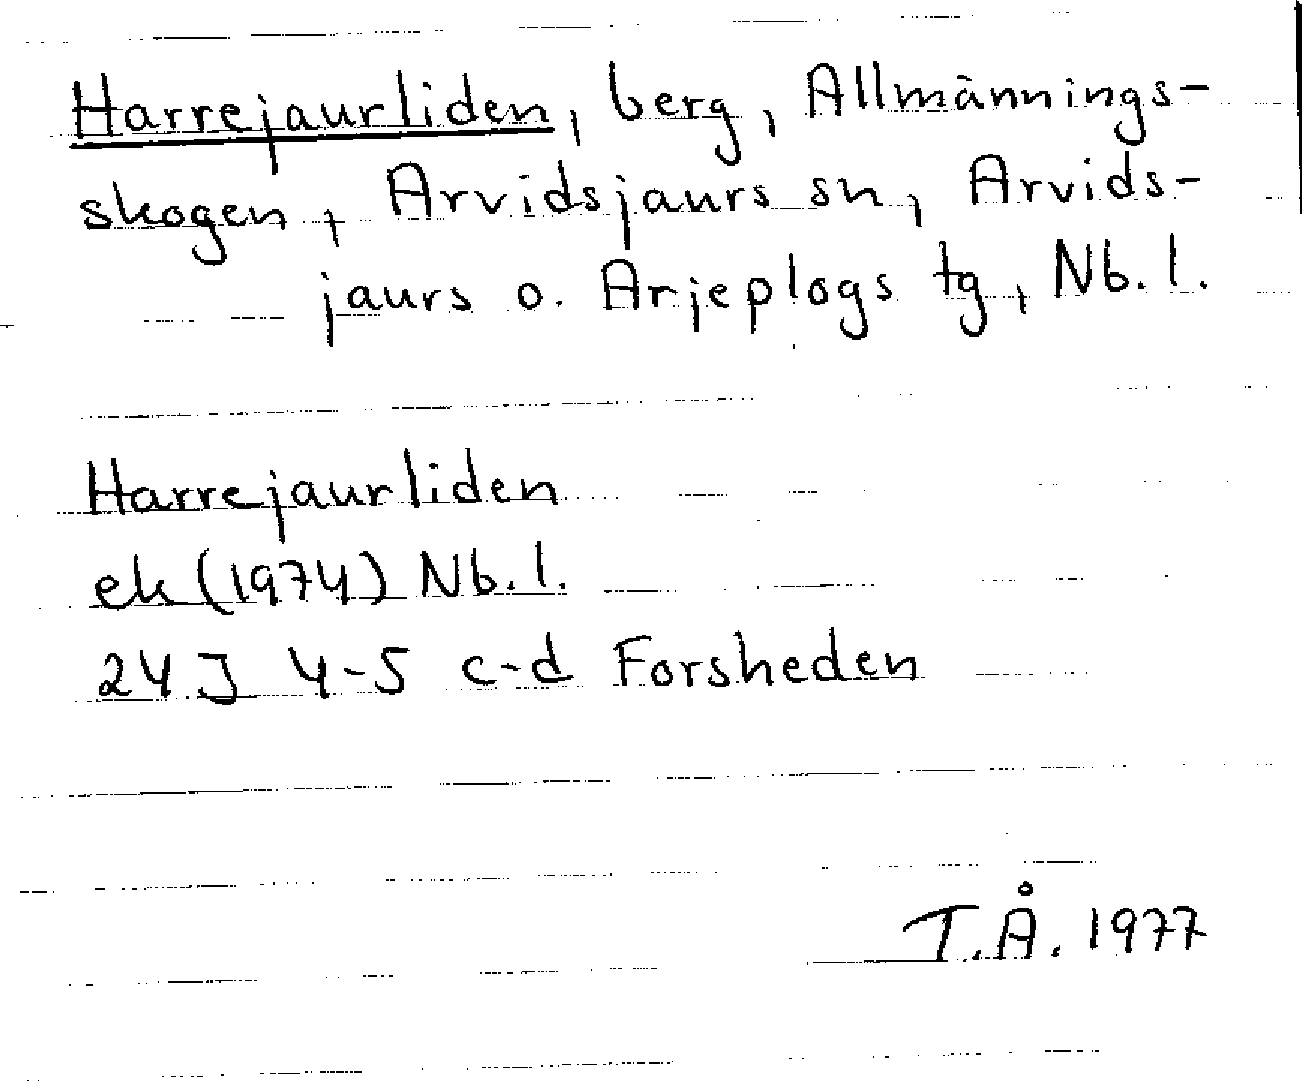 Harrejaurliden, berg, Allmännings-
skogen, Arvidsjaurs sn, Arvids-
jaurs o. Arjeplogs tg, Nb. l.
Harrejaurliden
ek (1974) Nb. l.
24 J 4-5 c-d Forsheden
T.Å. 1977